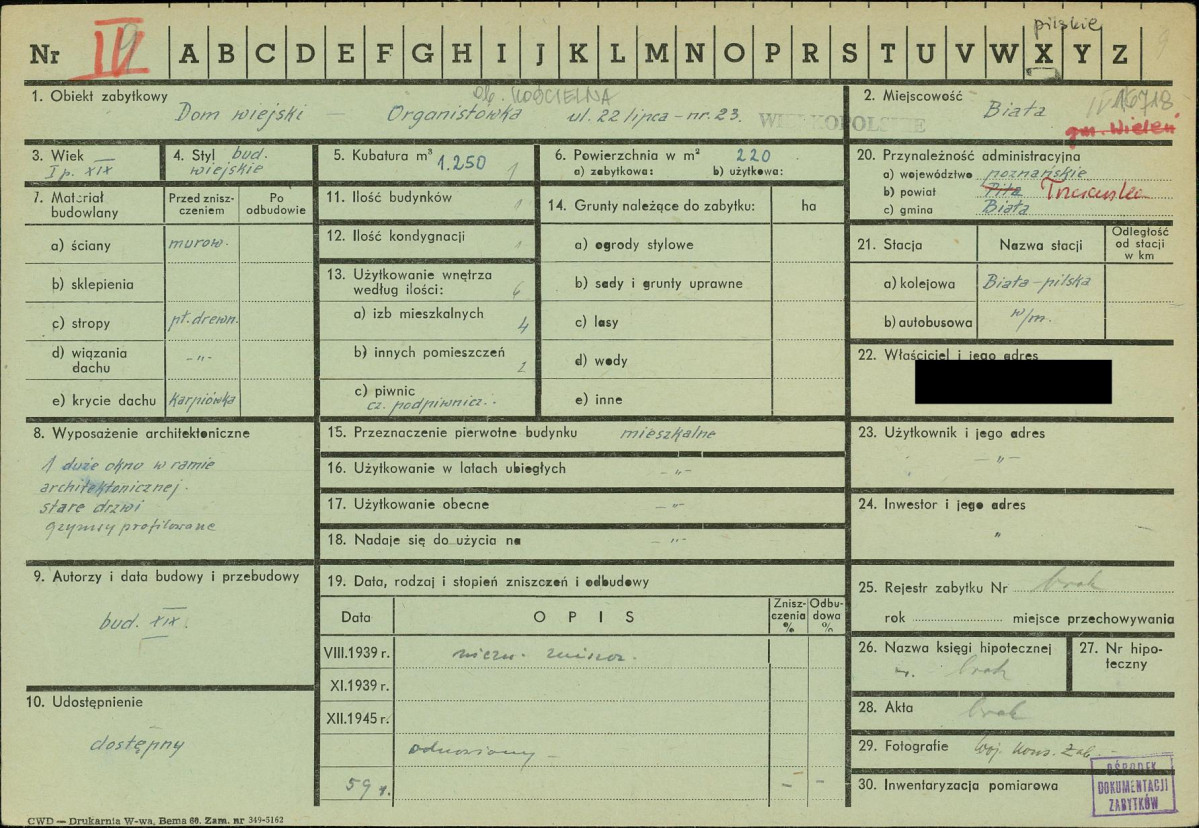 pilskie
Nr IV 9 A B C D E F G H I J K L M N O P R S T U V W X Y Z 9
1. Obiekt zabytkowy ob. KOŚCIELNA
Dom wiejski — Organistówka ul. 22 lipca - nr. 23.
WIELKOPOLSKIE
2. Miejscowość 16718
Biała
gm. Wieleń
3. Wiek
I p. XIX
4. Styl bud.
wiejskie
5. Kubatura m³ 1.250
6. Powierzchnia w m² 220
a) zabytkowa: b) użytkowa:
20. Przynależność administracyjna
a) województwo poznańskie
b) powiat Piła Trzcianka
c) gmina Biała
7. Materiał budowlany
Przed znisz-
czeniem
Po
odbudowie
a) ściany murow.
b) sklepienia
c) stropy pł. drewn.
d) wiązania
dachu -"-
e) krycie dachu karpiówka
11. Ilość budynków 1
12. Ilość kondygnacji 1
13. Użytkowanie wnętrza
według ilości: 6
a) izb mieszkalnych 4
b) innych pomieszczeń 2
c) piwnic
cz. podpiwnicz.
14. Grunty należące do zabytku: ha
a) ogrody stylowe
b) sady i grunty uprawne
c) lasy
d) wody
e) inne
21. Stacja Nazwa stacji
Odległość
od stacji
w km
a) kolejowa Biała-pilska
b) autobusowa w/m.
22. Właściciel i jego adres
8. Wyposażenie architektoniczne
1 duże okno w ramie
architektonicznej.
stare drzwi
gzymsy profilowane
15. Przeznaczenie pierwotne budynku mieszkalne
16. Użytkowanie w latach ubiegłych -"-
17. Użytkowanie obecne -"-
18. Nadaje się do użycia na -"-
23. Użytkownik i jego adres
-"-
24. Inwestor i jego adres
"
9. Autorzy i data budowy i przebudowy
bud. XIX.
19. Data, rodzaj i stopień zniszczeń i odbudowy
Data OPIS
Znisz-
czenia
%
Odbu-
dowa
%
VIII.1939 r.
XI.1939 r.
XII.1945 r.
59 r. - -
25. Rejestr zabytku Nr brak
rok miejsce przechowywania
26. Nazwa księgi hipotecznej
brak
27. Nr hipo-
teczny
28. Akta brak
29. Fotografie Woj. Kons. Zab.
30. Inwentaryzacja pomiarowa
10. Udostępnienie
dostępny
OŚRODEK
DOKUMENTACJI
ZABYTKÓW
CWD — Drukarnia W-wa, Bema 60. Zam. nr 349-5162